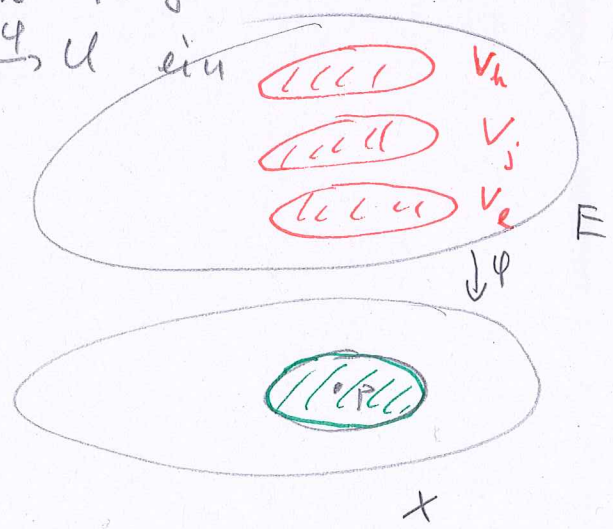 φ
→ U ein
V_k
V_j
V_e
E
↓ φ
p
X